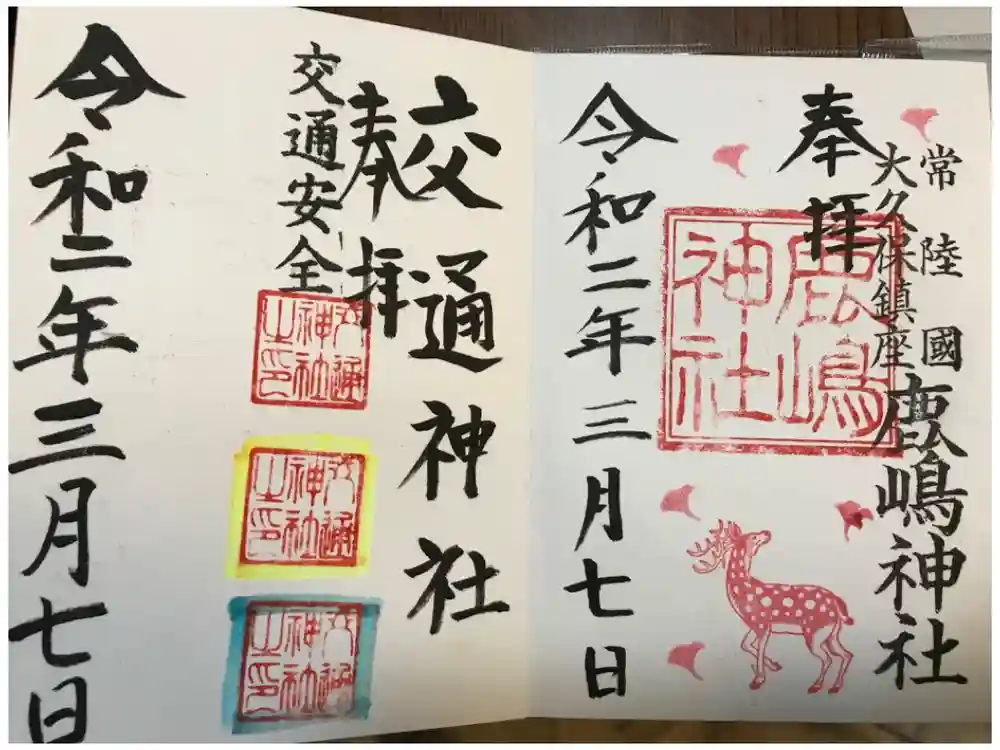 常陸國
大久保鎮座
鹿嶋神社
奉拝
鹿嶋
神社
令和二年三月七日
交通神社
奉拝
交通安全
交通
神社
之印
交通
神社
之印
交通
神社
之印
令和二年三月七日